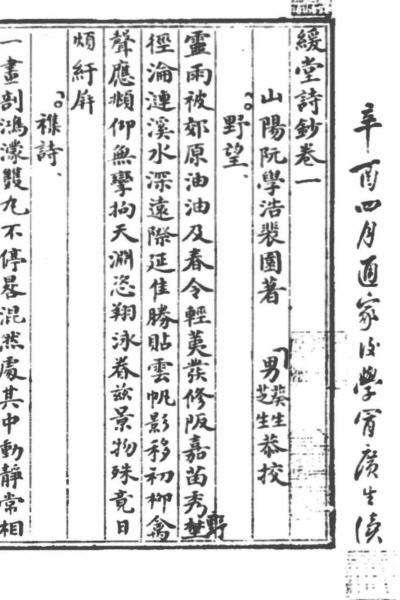 辛酉四月通家後學冒廣生讀
緩堂詩鈔卷一
山陽阮學浩裴園著 男葵生芝生恭校
野望
靈雨被郊原油油及春令輕荑發修阪嘉苗秀埜野
徑淪漣溪水深遠際延佳勝貼雲帆影移初柳禽
聲應頫仰無攣拘天淵恣翔泳眷茲景物殊竟日
煩紆屏
襍詩
一畫剖鴻濛雙丸不停晷混然處其中動靜常相